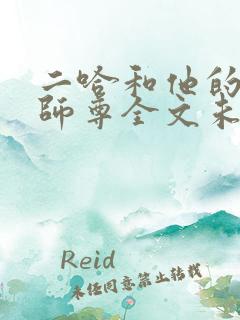 二哈和他的
師尊全文未
Reid
未任同意禁止转载